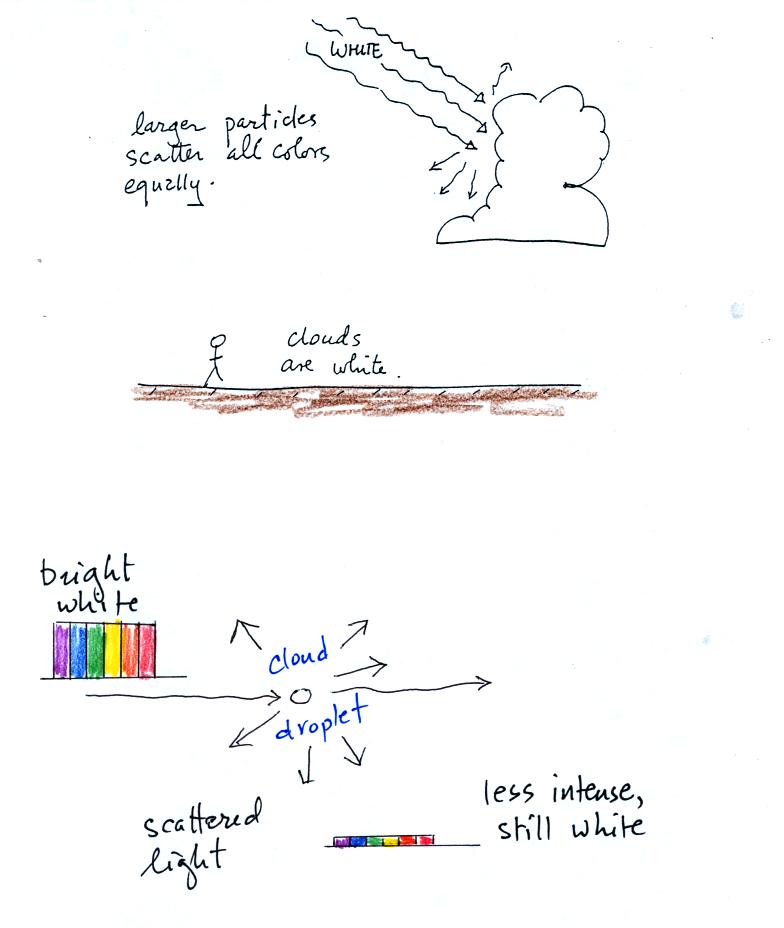 WHITE
larger particles
scatter all colors
equally.
clouds
are white.
bright
white
cloud
droplet
scattered
light
less intense,
still white